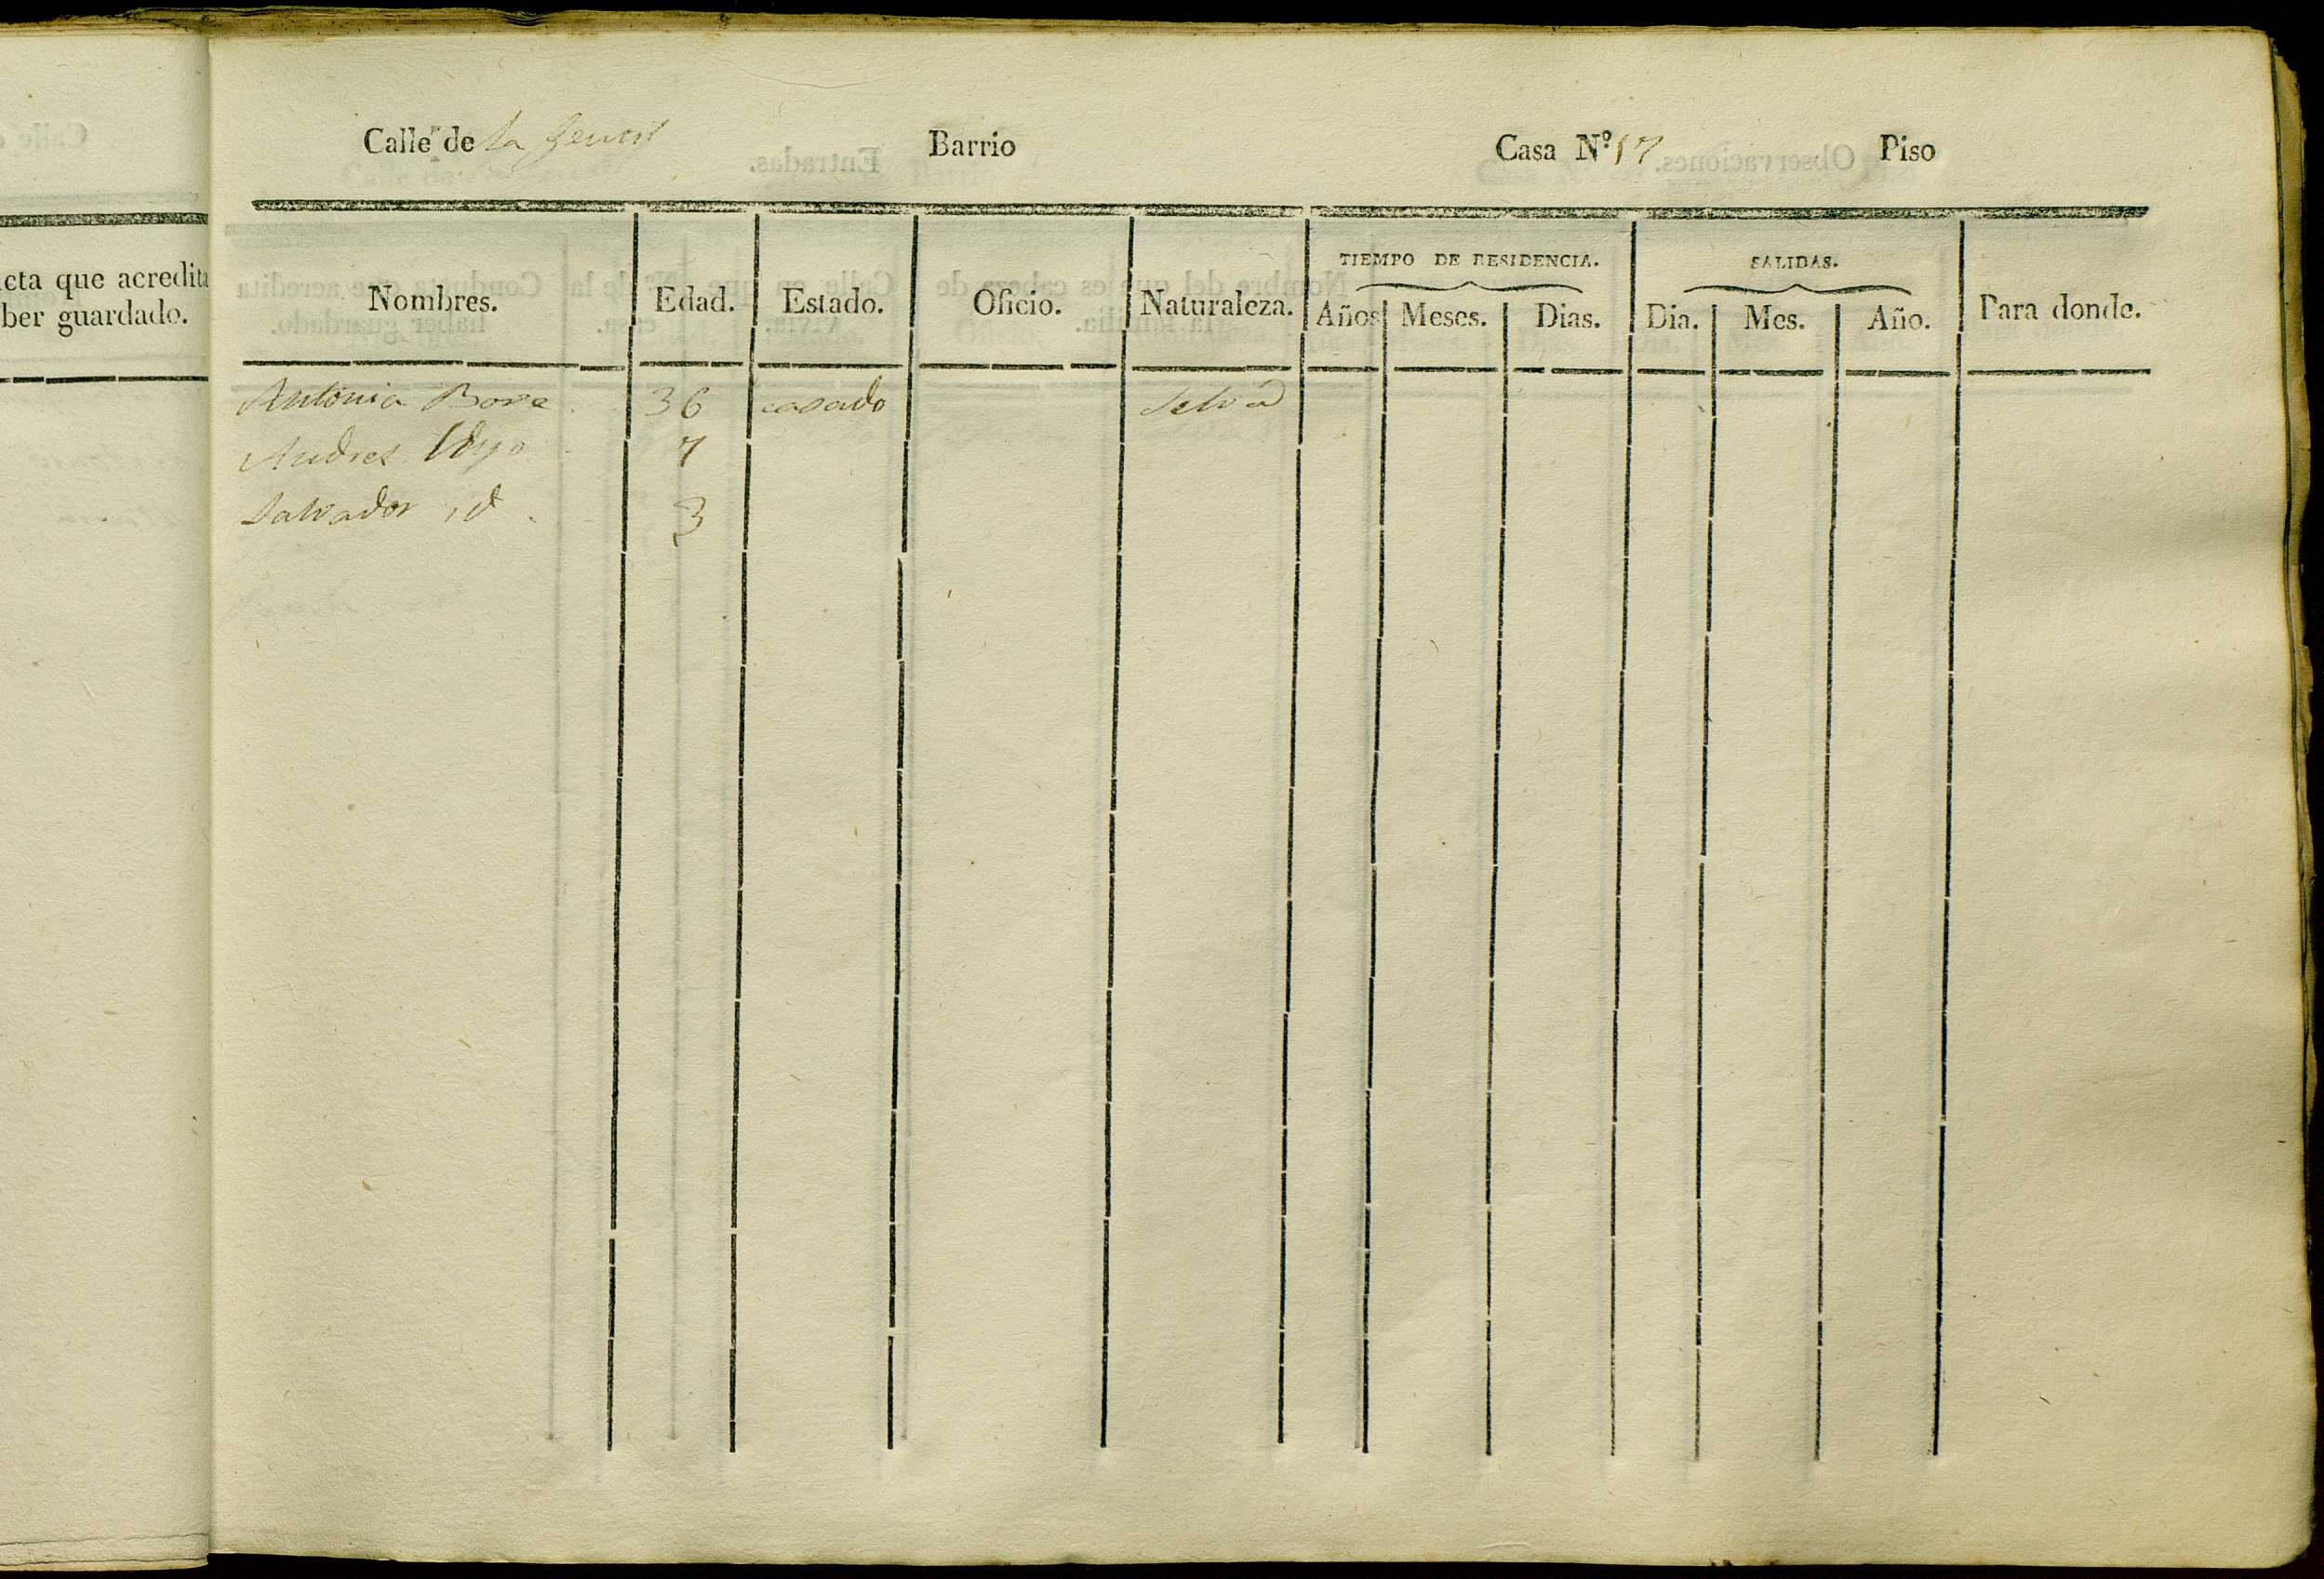 Calle de la Barrio Casa Nº 17 Piso
cta que acredita
ber guardado.
TIEMPO DE RESIDENCIA. SALIDAS.
Nombres. Edad. Estado. Oficio. Naturaleza. Años Meses. Dias. Dia. Mes. Año. Para donde.
Antonia Bove 36 casado Selva
Andres hijo 7
Salvador id. 3